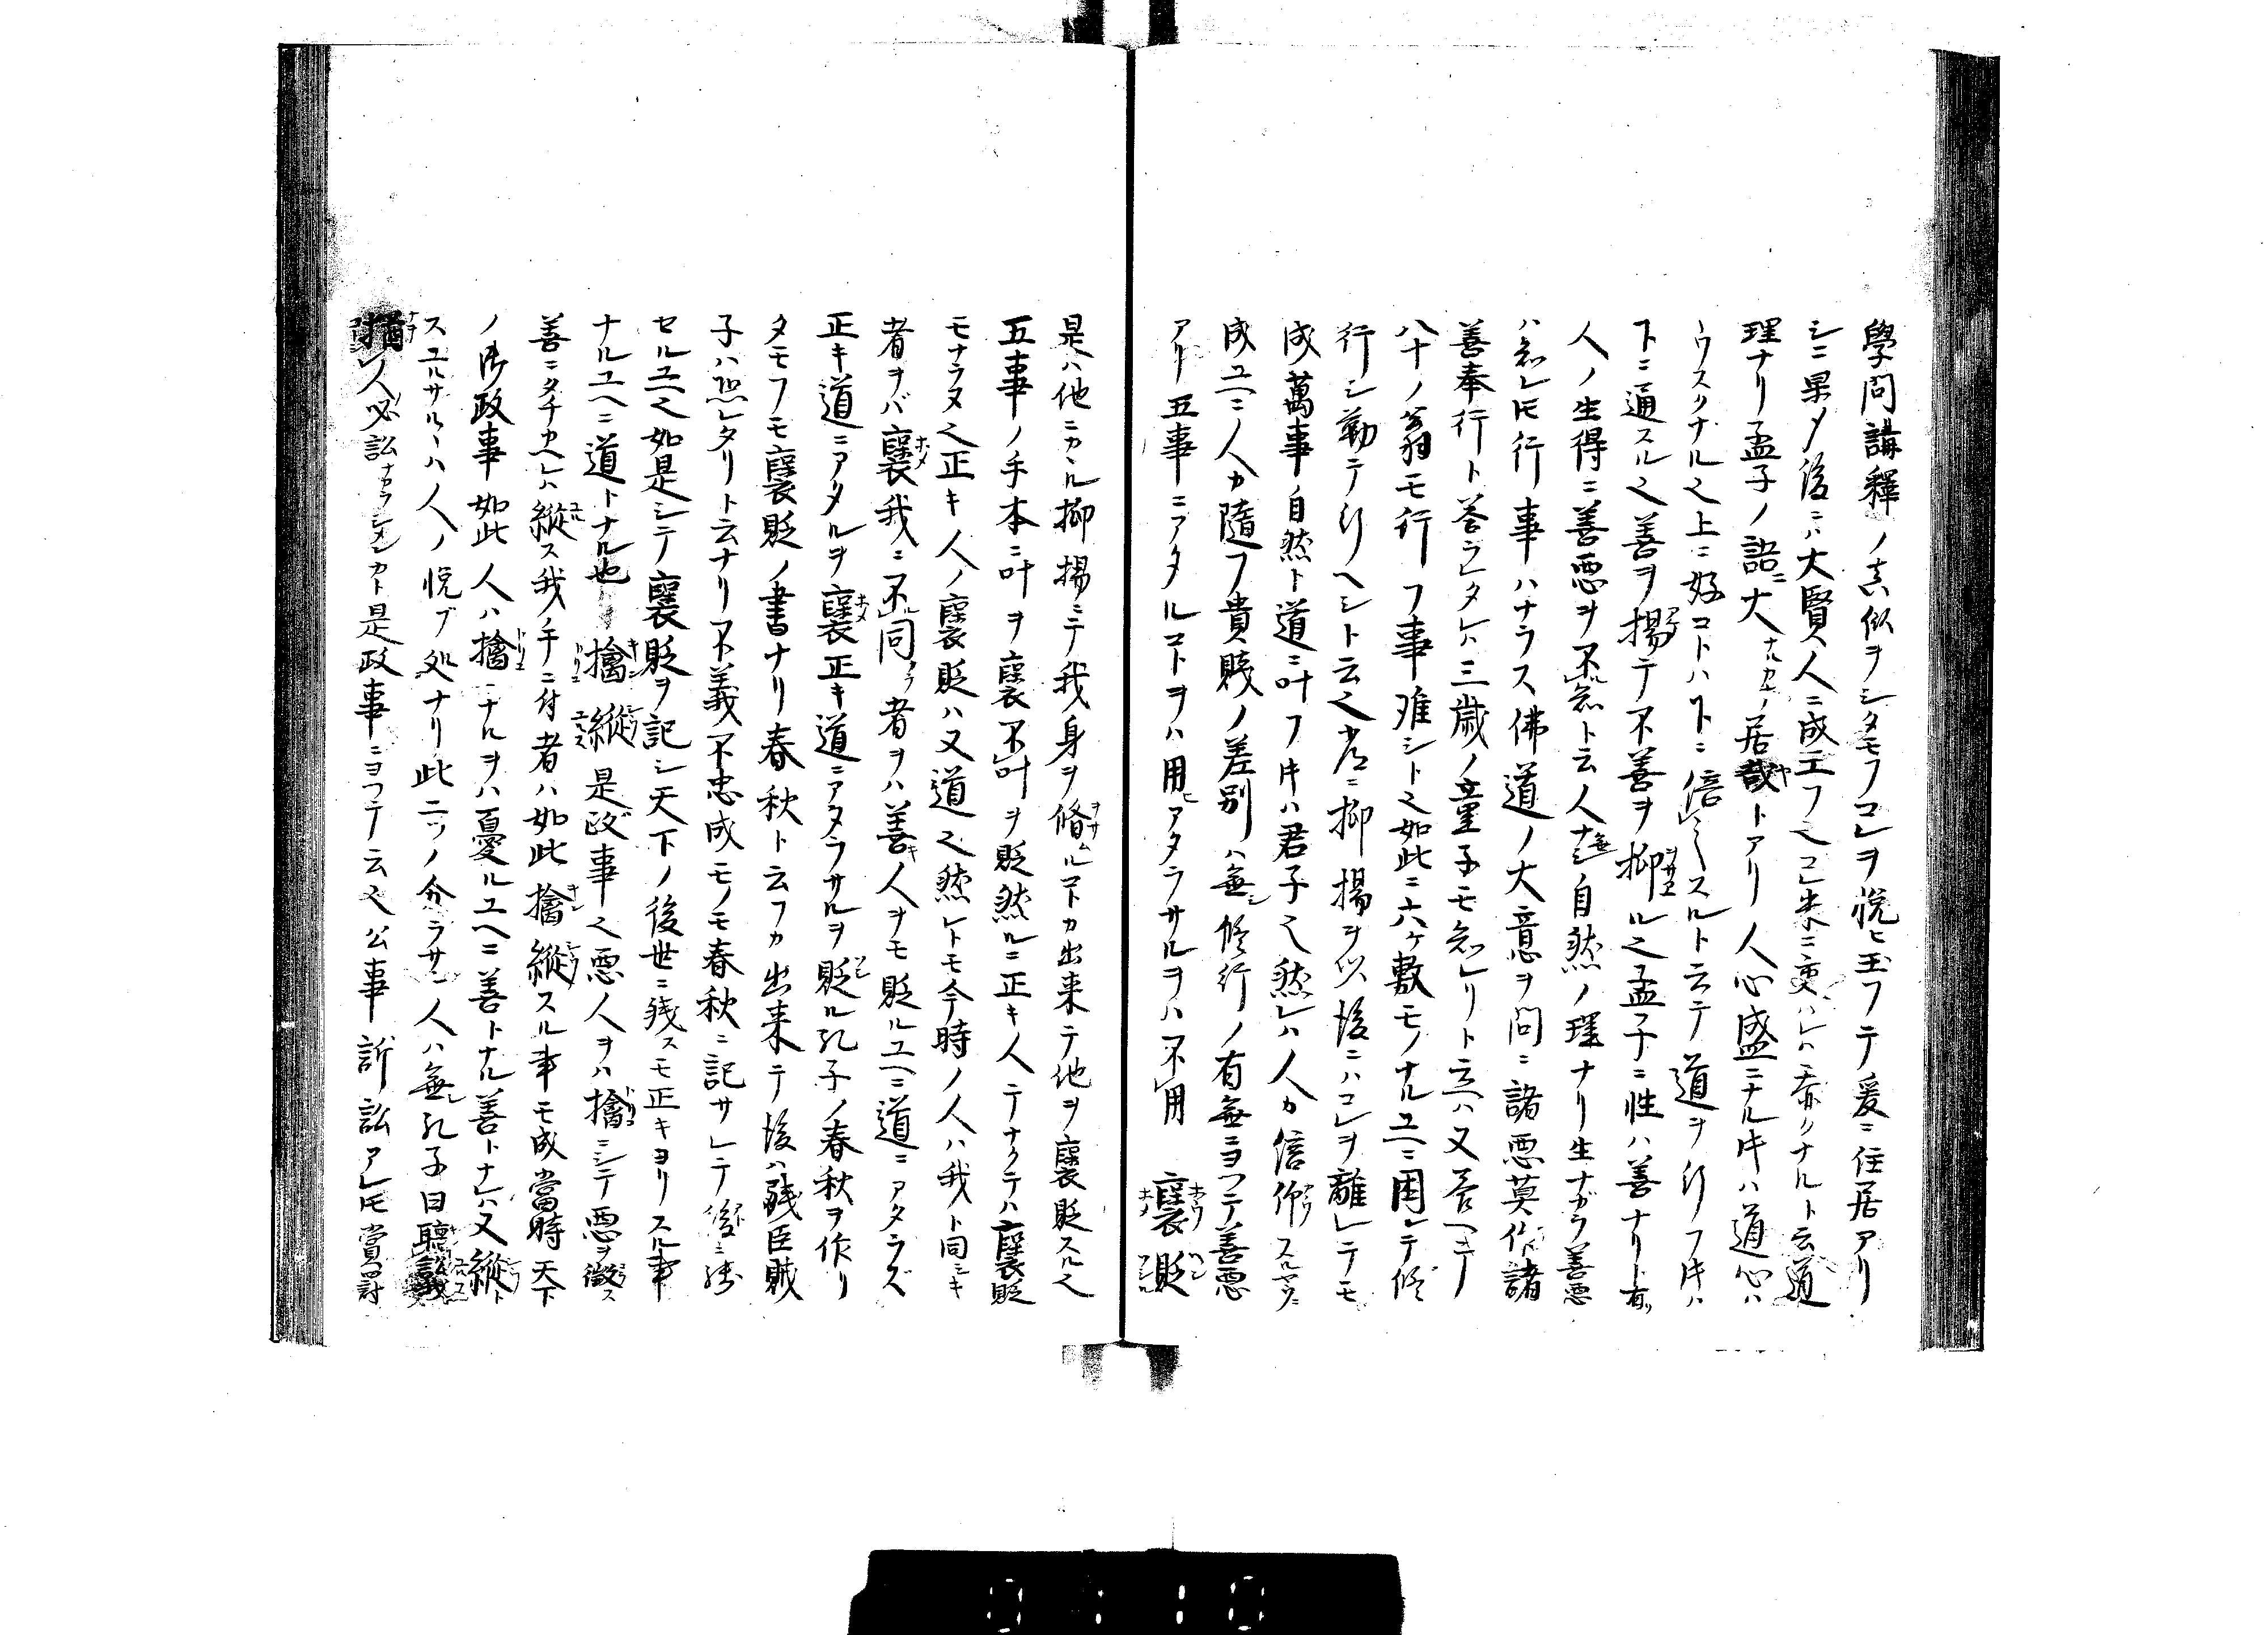 學問講釋ノ真似ヲシタモフコヲ悦ヒ玉フテ爰ニ住居アリ
シニ果メ後ニハ大賢人ニ成玉フ之
理ナリ孟子ノ語ニ大ナルカナ居哉トアリ人心盛ニナル牛ハ道心ハ
ウスクナル之上ニ好コトハ下ニ倍〻スルト云テ道ヲ行フ牛ハ
下ニ通スル之善ヲ揚テ不善ヲ抑ル之孟子ニ性ハ善ナリト有
人ノ生得ニ善悪ヲ不忘ト云人ナシ自然ノ理ナリ生ナガラ善悪
ハ忘レ氏行事ハナラス佛道ノ大意ヲ問ニ諸悪莫作諸
善奉行ト答ラレタレハ三歳ノ童子モ忘レリト云ヘハ又答ヘテ
八十ノ翁モ行フ事难シト之如此ニ六ケ敷モノナルユヘニ困レテ修
行シ勤テ行ヘシト云之常ニ抑揚ヲ以後ニハコレヲ離レテモ
成萬事自然ト道ニ叶フ牛ハ君子之然レハ人カ信仰スルヤウニ
成ユヘニ人カ隨フ貴賤ノ差別ハ無シ修行ノ有無ニヨツテ善悪
アリ五事ニアタルコトヲハ用ヒアタラサルヲハ不用 褒貶
是ハ他ニカヘル抑揚ニテ我身ヲ脩ルコトカ出来テ他ヲ褒貶スル之
五事ノ手本ニ叶ヲ褒不叶ヲ貶然ルニ正キ人テナクテハ褒貶
モナラヌ之正キ人ノ褒貶ハ又道之然レトモ今時ノ人ハ我ト同シキ
者ヲバ褒我ニ不同者ヲハ善キ人ヲモ貶ルユヘニ道ニアタラズ
正キ道ニアタルヲ褒正キ道ニアタラサルヲ貶ル孔子ノ春秋ヲ作リ
タモフモ褒貶ノ書ナリ春秋ト云フカ出来テ後ハ賊臣賊
子ハ恐レタリト云ナリ不義不忠成モノモ春秋ニ記サレテ
セルユヘ之如是シテ褒貶ヲ記シ天下ノ後世ニ残スモ正キヨリスル事
ナルユヘニ道トナル也 擒縦 是政事之悪人ヲハ擒ニシテ悪ヲ徴ス
善ニタチカヘレハ縦ス我ノ手ニ付者ハ如此擒縦スル事モ成當時天下
ノ御政事如此人ハ擒ニナルヲハ憂ルユヘニ善トナル善トナレハ又縦ト
スユルサルヽハ人ノ悦ブ処ナリ此二ツノ分ラサル人ハ無シ孔子曰聽訟
猶人必訟ナカラシメンカト是政事ニヨツテ云之公事訴訟アレ氏賞罰